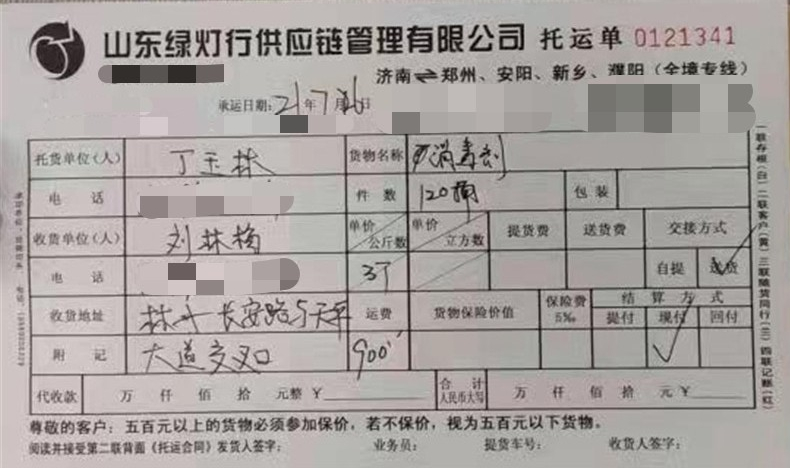 山东绿灯行供应链管理有限公司 托运单 0121341
济南⇌郑州、安阳、新乡、濮阳（全境专线）
承运日期：21年7月26日
托货单位（人） 丁玉林 货物名称 消毒剂
电话 件数 120桶 包装
收货单位（人） 刘林杨 单价 公斤数 单价 立方数 提货费 送货费 交接方式
电话 3T 自提 送货
收货地址 林 长安路与天平 运费 货物保险价值 保险费5‰ 结算方式 提付 现付 回付
附记 大道交叉口 900
代收款 万 仟 佰 拾 元整 ¥ 合计人民币大写 万 仟 佰 拾 元 ¥
尊敬的客户：五百元以上的货物必须参加保价，若不保价，视为五百元以下货物。
阅读并接受第二联背面《托运合同》发货人签字： 业务员： 提货车号： 收货人签字：
一联存根（白）二联客户（黄）三联随货同行（兰）四联记账（红）